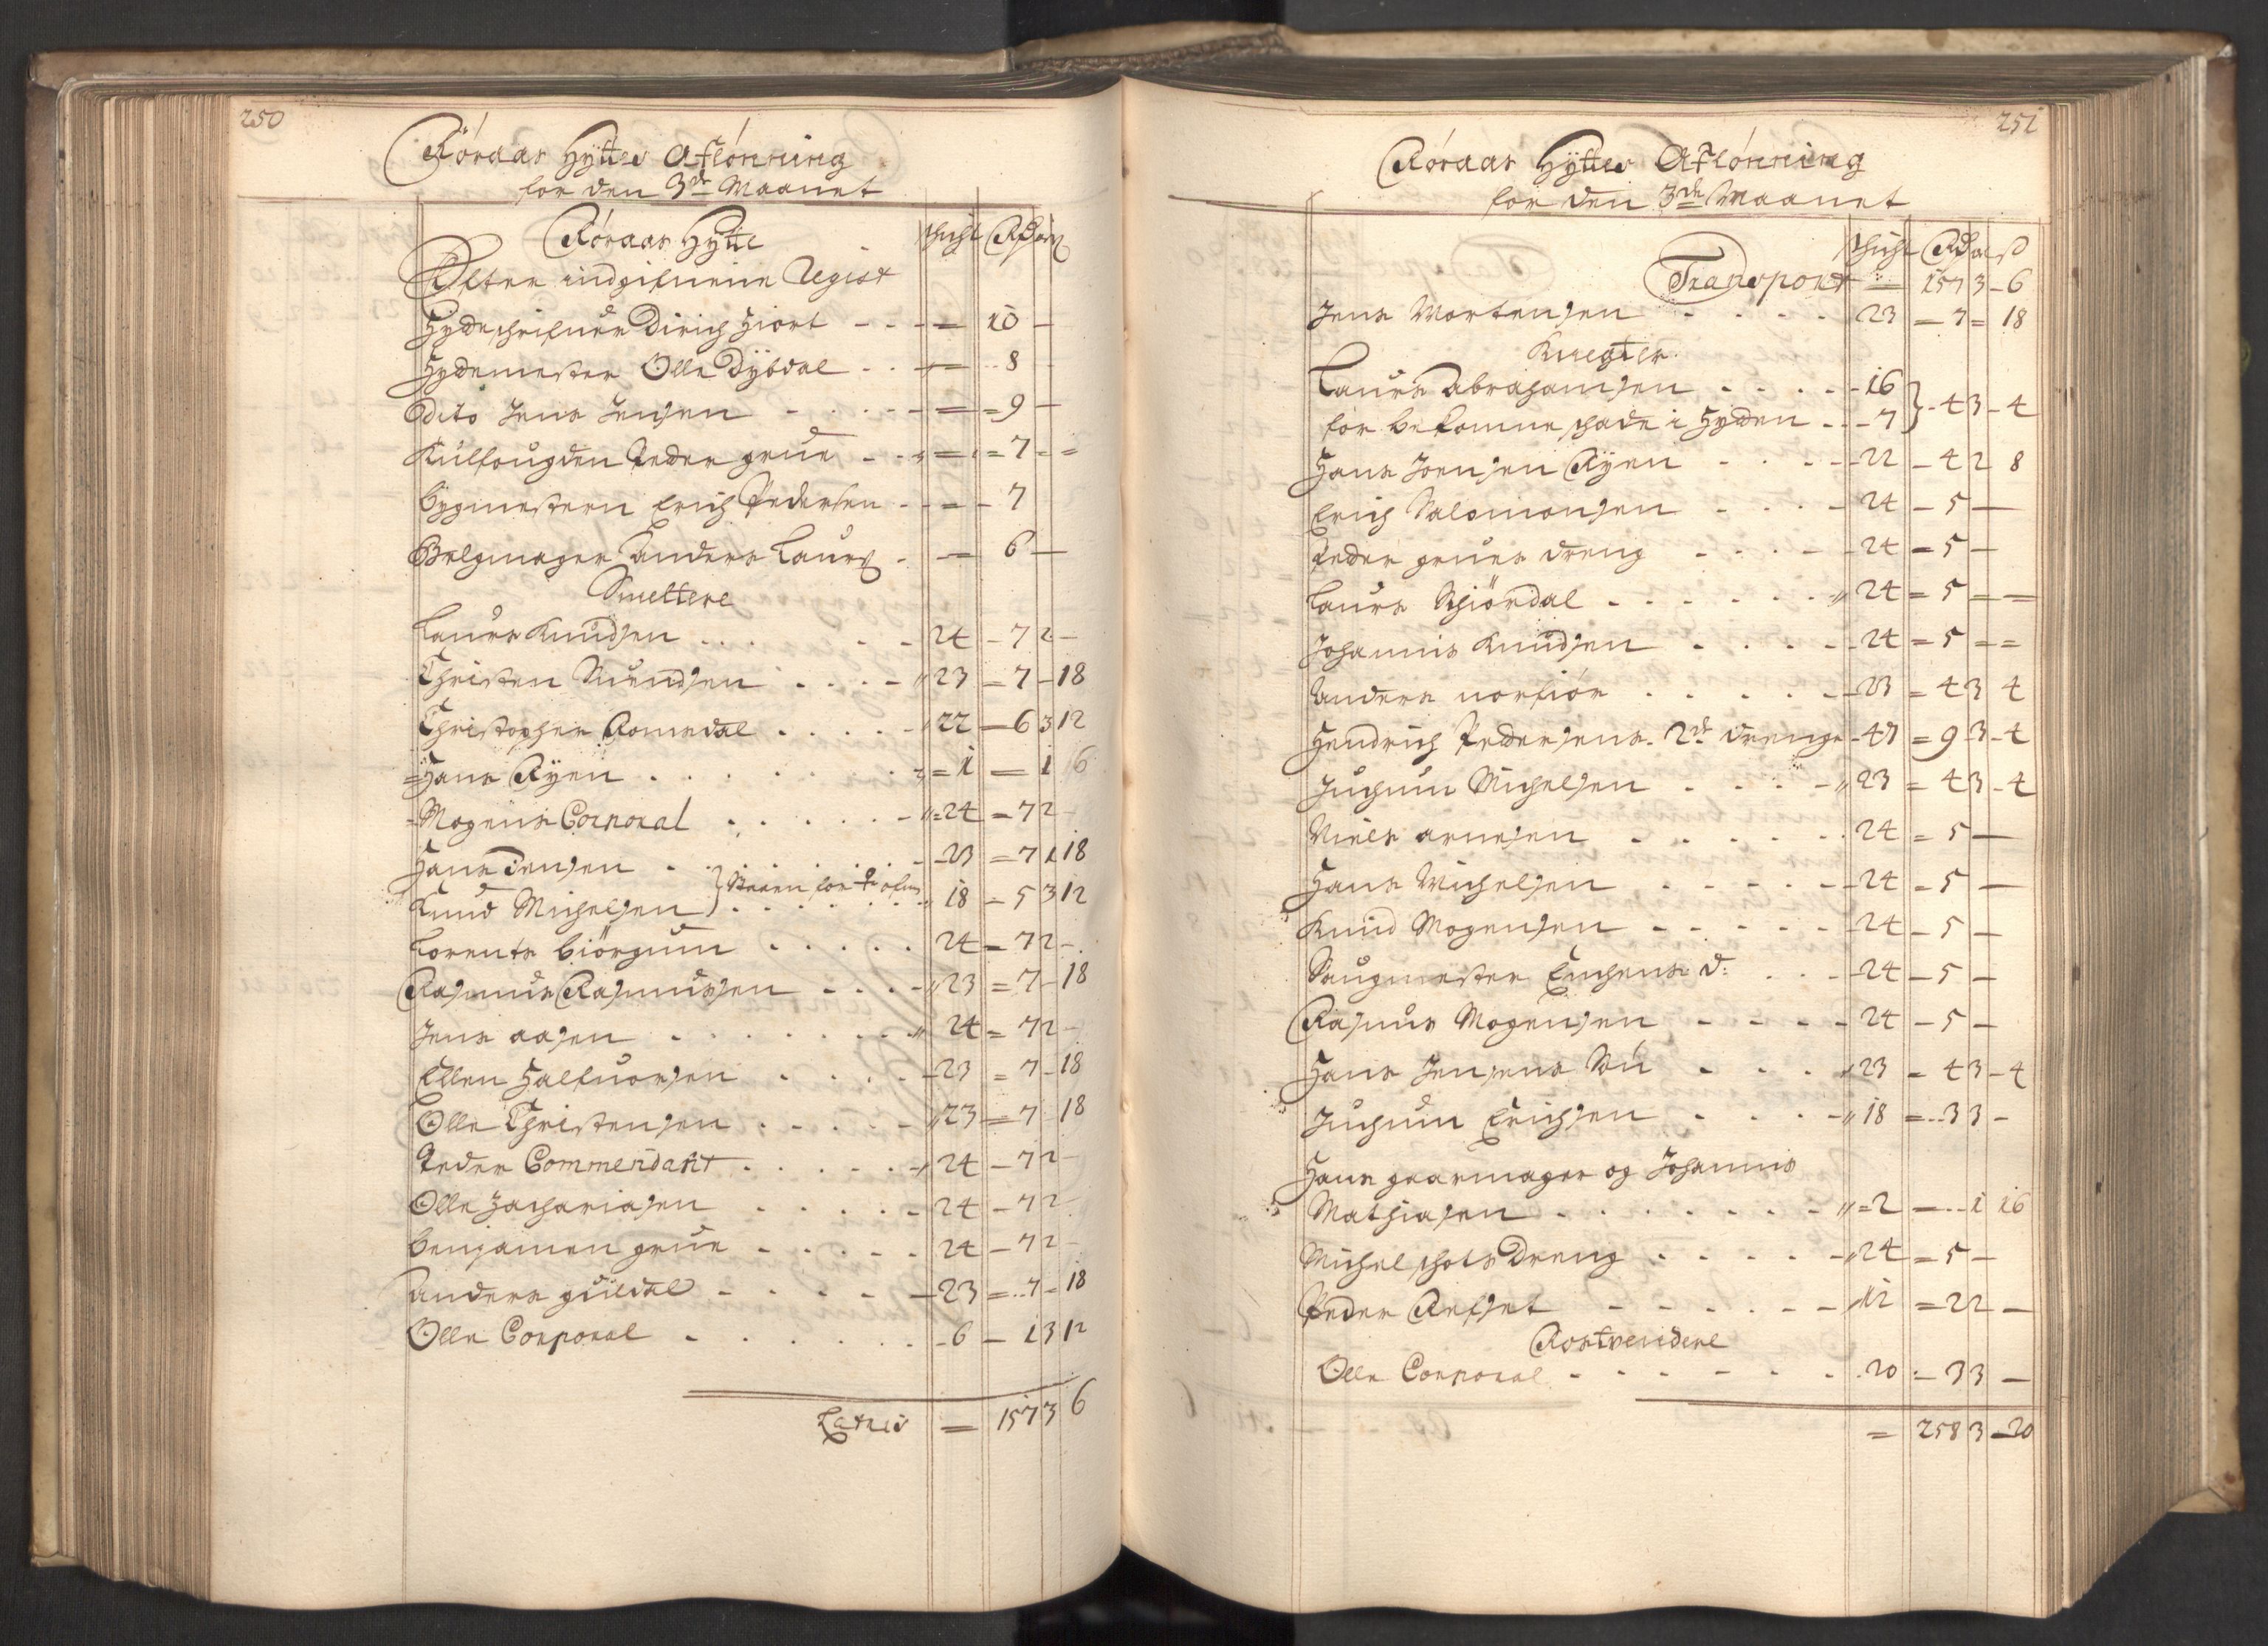 250
Röraas Hÿttes Aflönning
for den 3de Maanet
Röraas Hÿtte
schicht Rdr ort ß
Efter indgifuene Regist
Hydeschrifuer Dirich Hiort - - - = 10 -
Hydemester Olle Dÿbdal - - = 8
Dito Jens Jensen - - - = 9 -
Kulfougden Peder grue - - = 7 - =
bygmestern Erich Pedersen - - = 7
Belgmager Anders Laurs - = 6 -
Smeltere
Laurs Knudsen 24 - 7 2 -
Christen Suendsen 23 - 7 - 18
Christopher Romedal 22 - 6 3 12
Hans Rÿen 1 - 1 6
Mogens Corporal 24 - 7 2 -
Hans Jensen 23 - 7 1 18
Knud Michelsen 18 - 5 3 12
Lorents biörgum 24 - 7 2 -
Rasmus Rasmussen 23 - 7 - 18
Jens aasen 24 - 7 2 -
Ellen Halfuorsen 23 - 7 - 18
Olle Christensen 23 - 7 - 18
Peder Commendant 24 - 7 2 -
Olle Zachariasen 24 - 7 2
benjamen grue 24 - 7 2
Anders guldal 23 - 7 - 18
Olle Corporal 6 - 1 3 12
Latus = 157 3 6
251
Röraas Hÿttes Aflönning
for den 3de Maanet
schicht Rdr ort ß
Transport = 157 3 - 6
Jens Mortensen 23 - 7 = 18
Knegter
Laurs Abrahamsen 16
for bekomne schade i Hyden 7 } 4 3 - 4
Hans Joensen Rÿen 22 - 4 2 8
Erich Salomonsen 24 - 5 -
Peder grues dreng 24 - 5 -
Laurs Schiördal 24 = 5 = =
Johannis Knudsen 24 = 5 = =
Anders norfiör 23 = 4 3 4
Hendrich Pedersens 2de drenge 47 = 9 3 - 4
Juchum Michelsen 23 = 4 3 - 4
Niels arnesen 24 = 5 -
Hans Michelsen 24 - 5 -
Knud Mogensen 24 - 5 -
Saugmester Enchens d: 24 - 5 -
Rasmus Mogensen 24 - 5 -
Hans Jensens Sön 23 - 4 3 - 4
Juchum Erichsen 18 = 3 3 -
Hans gaarmager og Johannis
Mathiasen = 2 - 1 16
Michel schots Dreng 24 = 5 -
Peder Refset 12 = 2 2 -
Rostvendere
Olle Corporal 20 - 3 3 -
= 258 3 - 20